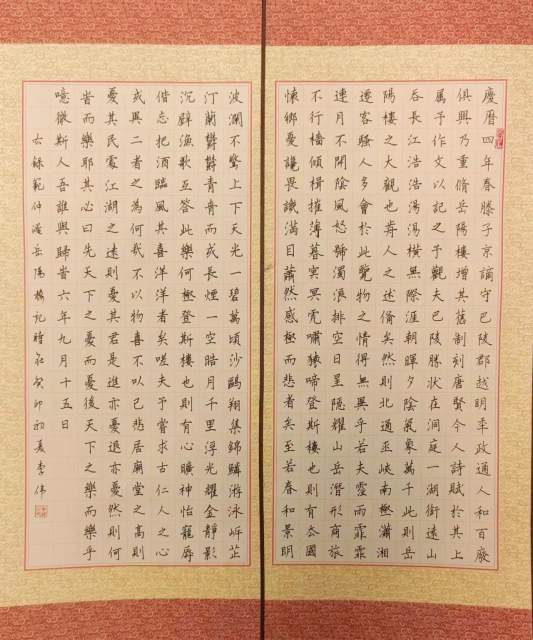 慶曆四年春滕子京謫守巴陵郡越明年政通人和百廢
俱興乃重脩岳陽樓增其舊制刻唐賢今人詩賦於其上
屬予作文以記之予觀夫巴陵勝狀在洞庭一湖銜遠山
吞長江浩浩湯湯橫無際涯朝暉夕陰氣象萬千此則岳
陽樓之大觀也歬人之述備矣然則北通巫峽南極瀟湘
遷客騷人多會於此覽物之情得無異乎若夫霪雨霏霏
連月不開陰風怒號濁浪排空日星隱耀山岳潛形商旅
不行檣傾楫摧薄暮冥冥虎嘯猿啼登斯樓也則有去國
懷鄉憂讒畏譏滿目蕭然感極而悲者矣至若春和景明
波瀾不驚上下天光一碧萬頃沙鷗翔集錦鱗游泳岸芷
汀蘭鬱鬱青青而或長煙一空皓月千里浮光耀金靜影
沉璧漁歌互答此樂何極登斯樓也則有心曠神怡寵辱
偕忘把酒臨風其喜洋洋者矣嗟夫予嘗求古仁人之心
或異二者之為何哉不以物喜不以己悲居廟堂之高則
憂其民處江湖之遠則憂其君是進亦憂退亦憂然則何
旹而樂耶其心曰先天下之憂而憂後天下之樂而樂乎
噫微斯人吾誰與歸旹六年九月十五日
右錄範仲淹岳陽樓記時在癸卯初夏李偉